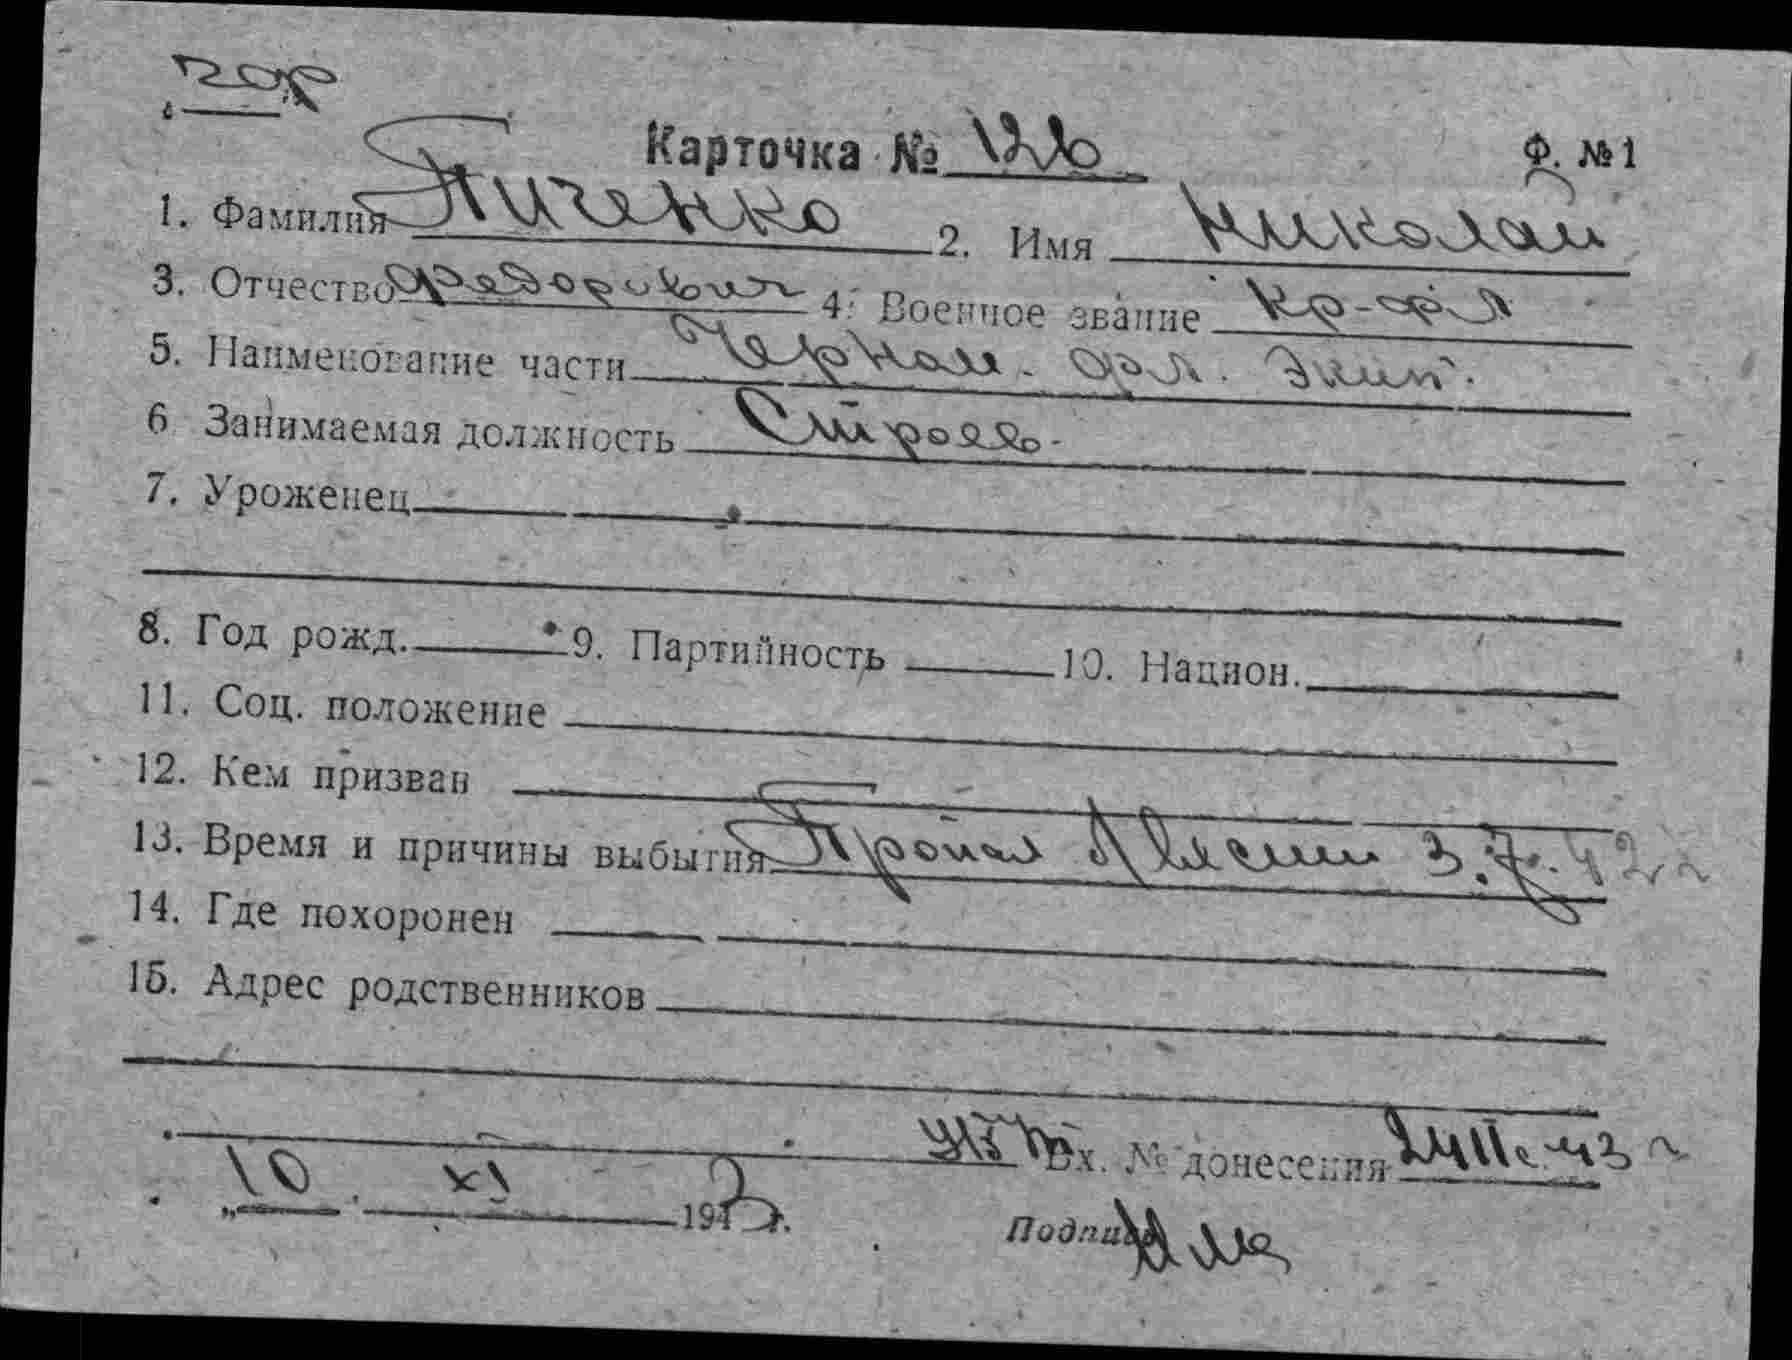 Карточка № 126 Ф. №1
1. Фамилия Пиченко 2. Имя Николай
3. Отчество Федорович 4. Военное звание кр-фл
5. Наименование части Черном. фл. экип.
6 Занимаемая должность Строев.
7. Уроженец
8. Год рожд. 9. Партийность 10. Национ.
11. Соц. положение
12. Кем призван
13. Время и причины выбытия Пропал б/вести 3.7.42 г
14. Где похоронен
15. Адрес родственников
Вх. № донесения
„10 XI 1943 г.
Подпись